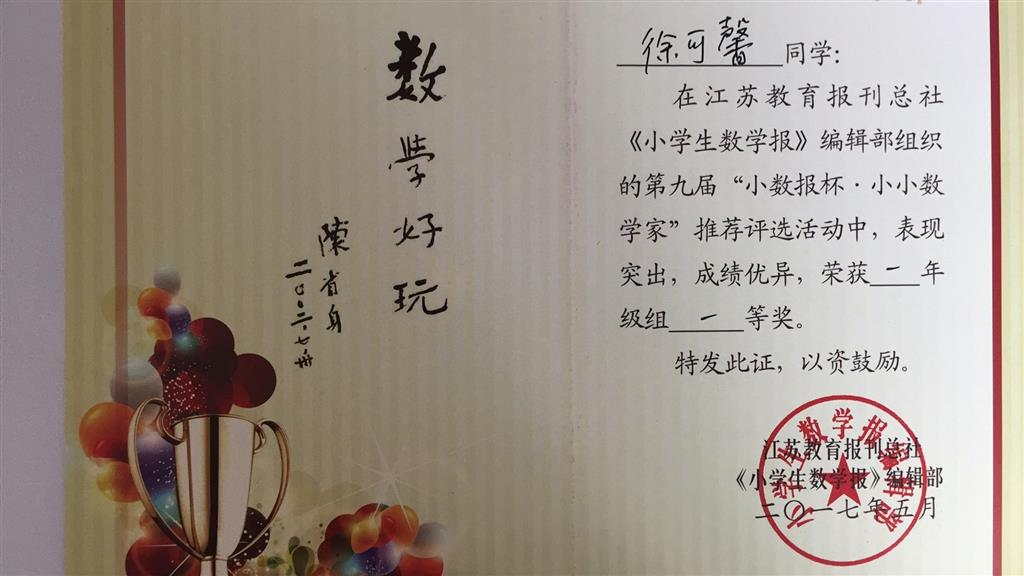 数学好玩
陳省身
徐可馨同学:
在江苏教育报刊总社
《小学生数学报》编辑部组织
的第九届“小数报杯·小小数
学家”推荐评选活动中，表现
突出，成绩优异，荣获一年
级组一等奖。
特发此证，以资鼓励。
江苏教育报刊总社
《小学生数学报》编辑部
二〇一七年五月
小学生数学报编辑部